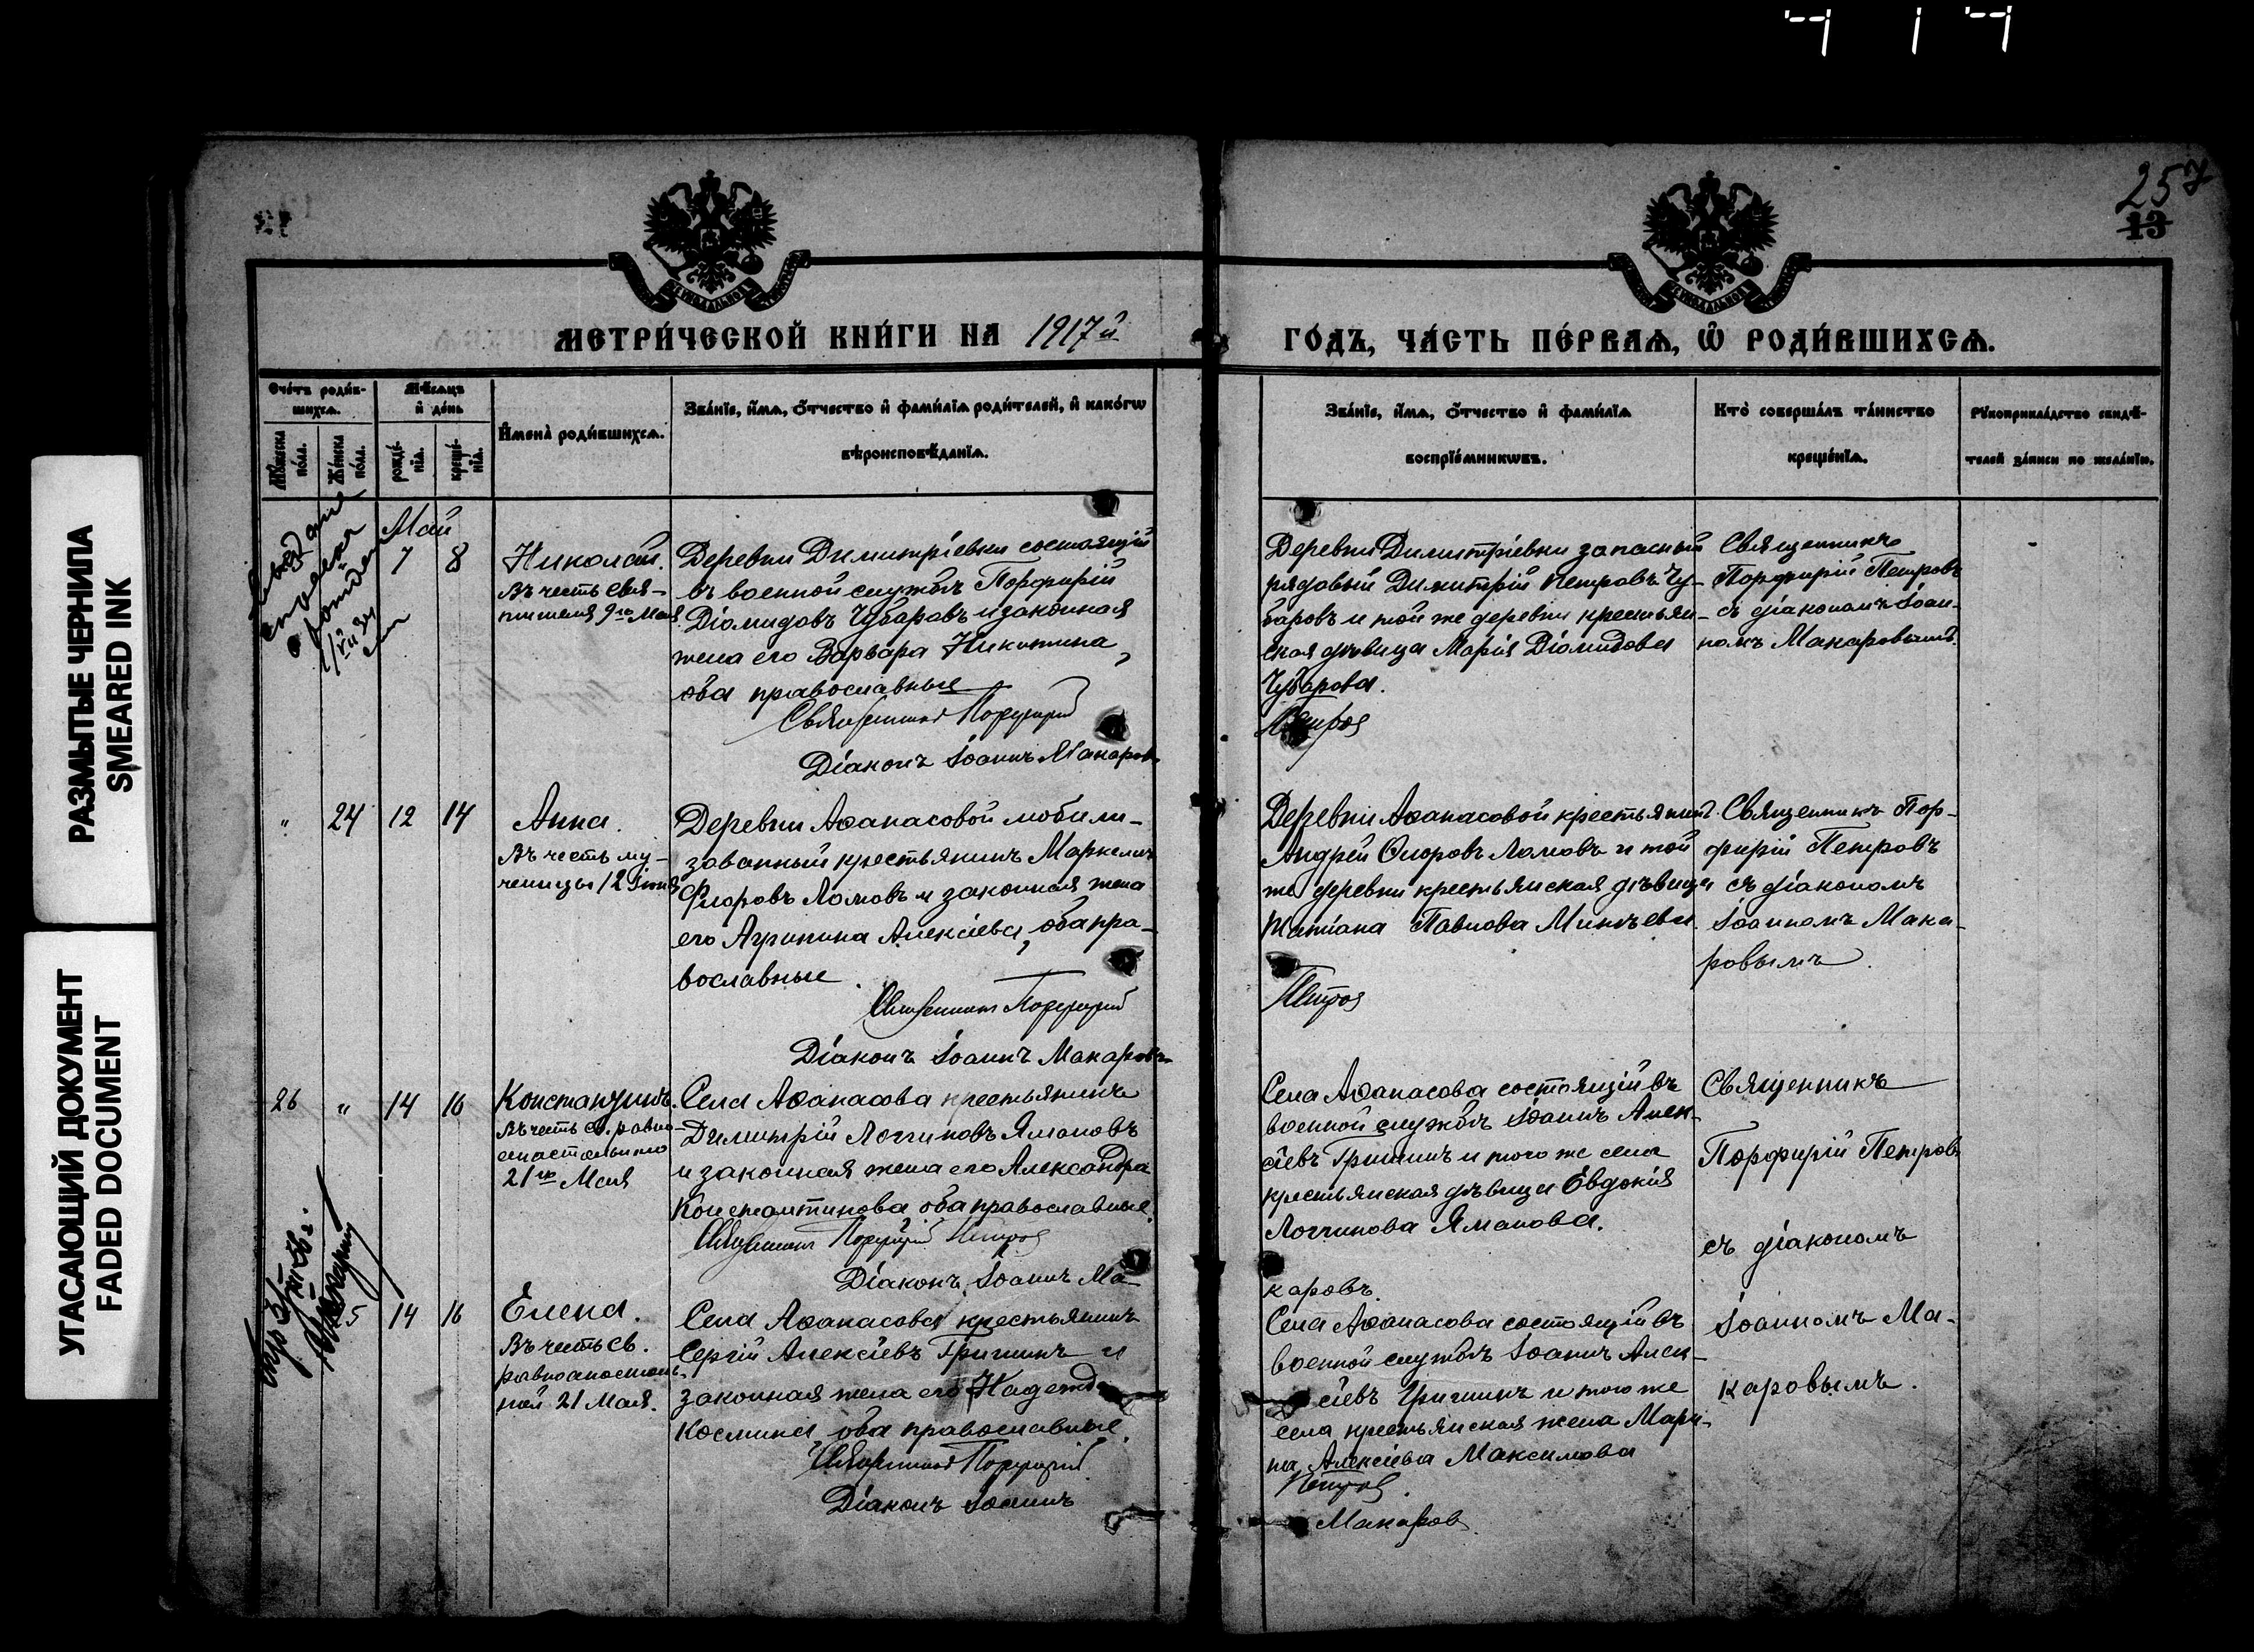 257
13
МЕТРИ́ЧЕСКОЙ КНИ́ГИ НА 1917й
ГО́ДЪ, ЧА́СТЬ ПЕ́РВАѦ, Ѡ҆ РОДИ́ВШИХСѦ.
Сче́тъ роди́в-
шихсѧ.
Мꙋ́жеска по́ла.
Же́нска по́ла.
Мѣ́сѧцъ
и҆ де́нь
рожде́-
нїѧ.
креще́-
нїѧ.
И҆мена̀ роди́вшихсѧ.
Зва́нїе, и҆́мѧ, ѻ҆́тчество и҆ фами́лїѧ роди́телей, и҆ како́гѡ
вѣроисповѣ́данїѧ.
Зва́нїе, и҆́мѧ, ѻ҆́тчество и҆ фами́лїѧ
воспрїе́мникѡвъ.
Кто̀ соверша́лъ та́инство
креще́нїѧ.
Рꙋкоприкла́дство свидѣ́-
телей за́писи по жела́нїю.
Май
7 8
Николай.
Въ честь Свя-
тителя 9го Мая
Деревни Димитріевки состоящій
въ военной службѣ Порфирій
Діомидовъ Чубаровъ и законная
жена его Варвара Никитина,
оба православные
Священникъ Порфирій
Діаконъ Іоаннъ Макаровъ
Деревни Димитріевки запасный
рядовый Димитрій Петровъ Чу-
баровъ и той же деревни крестьян-
ская дѣвица Марія Діомидова
Чубарова.
Петров
Священникъ
Порфирій Петровъ
съ діакономъ Іоан-
номъ Макаровымъ.
" 24 12 14
Анна.
Въ честь му-
ченицы 12 Іюня
Деревни Аѳанасовой мобили-
зованный крестьянинъ Маркеллъ
Флоровъ Ломовъ и законная жена
его Агрипина Алексіева, оба пра-
вославные.
Священникъ Порфирій
Діаконъ Іоаннъ Макаровъ
Деревни Аѳанасовой крестьянинъ
Андрей Флоровъ Ломовъ и той
же деревни крестьянская дѣвица
Татіана Павлова Минѣева.
Петров
Священникъ Пор-
фирій Петровъ
съ діакономъ
Іоанномъ Мака-
ровымъ.
26 " 14 16
Константинъ.
Въ честь св. равно-
апостольнаго
21го Мая
Села Аѳанасова крестьянинъ
Димитрій Логгиновъ Ямановъ
и законная жена его Александра
Константинова оба православные.
Священникъ Порфирій Петров
Діаконъ Іоаннъ Ма-
Села Аѳанасова состоящій въ
военной службѣ Іоаннъ Алек-
сіевъ Гришинъ и того же села
крестьянская дѣвица Евдокія
Логгинова Яманова.
каровъ.
Священникъ
Порфирій Петровъ
съ діакономъ
25 14 16
Елена.
Въ честь св.
равноапостоль-
ной 21 Мая.
Села Аѳанасова крестьянинъ
Сергій Алексіевъ Гришинъ и
законная жена его Надежда
Космина, оба православные.
Священникъ Порфирій
Діаконъ Іоаннъ
Села Аѳанасова состоящій въ
военной службѣ Іоаннъ Алек-
сіевъ Гришинъ и того же
села крестьянская жена Мари-
на Алексіева Максимова
Петров.
Макаров
Іоанномъ Ма-
каровымъ.
РАЗМЫТЫЕ ЧЕРНИЛА
SMEARED INK
УГАСАЮЩИЙ ДОКУМЕНТ
FADED DOCUMENT